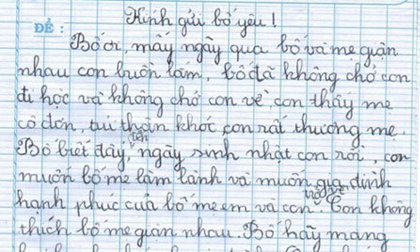 Kính gửi bố yêu!
ĐỀ:
Bố ơi, mấy ngày qua bố và mẹ giận
nhau con buồn lắm, bố đã không chở con
đi học và không chở con về, con thấy mẹ
cô đơn, tủi thân khóc, con rất thương mẹ.
Bố biết đấy, tới ngày sinh nhật con rồi, con
muốn bố mẹ làm lành và muốn gia đình
hạnh phúc của bố mẹ em và con trở về. Con không
thích bố mẹ giận nhau. Bố hãy mang